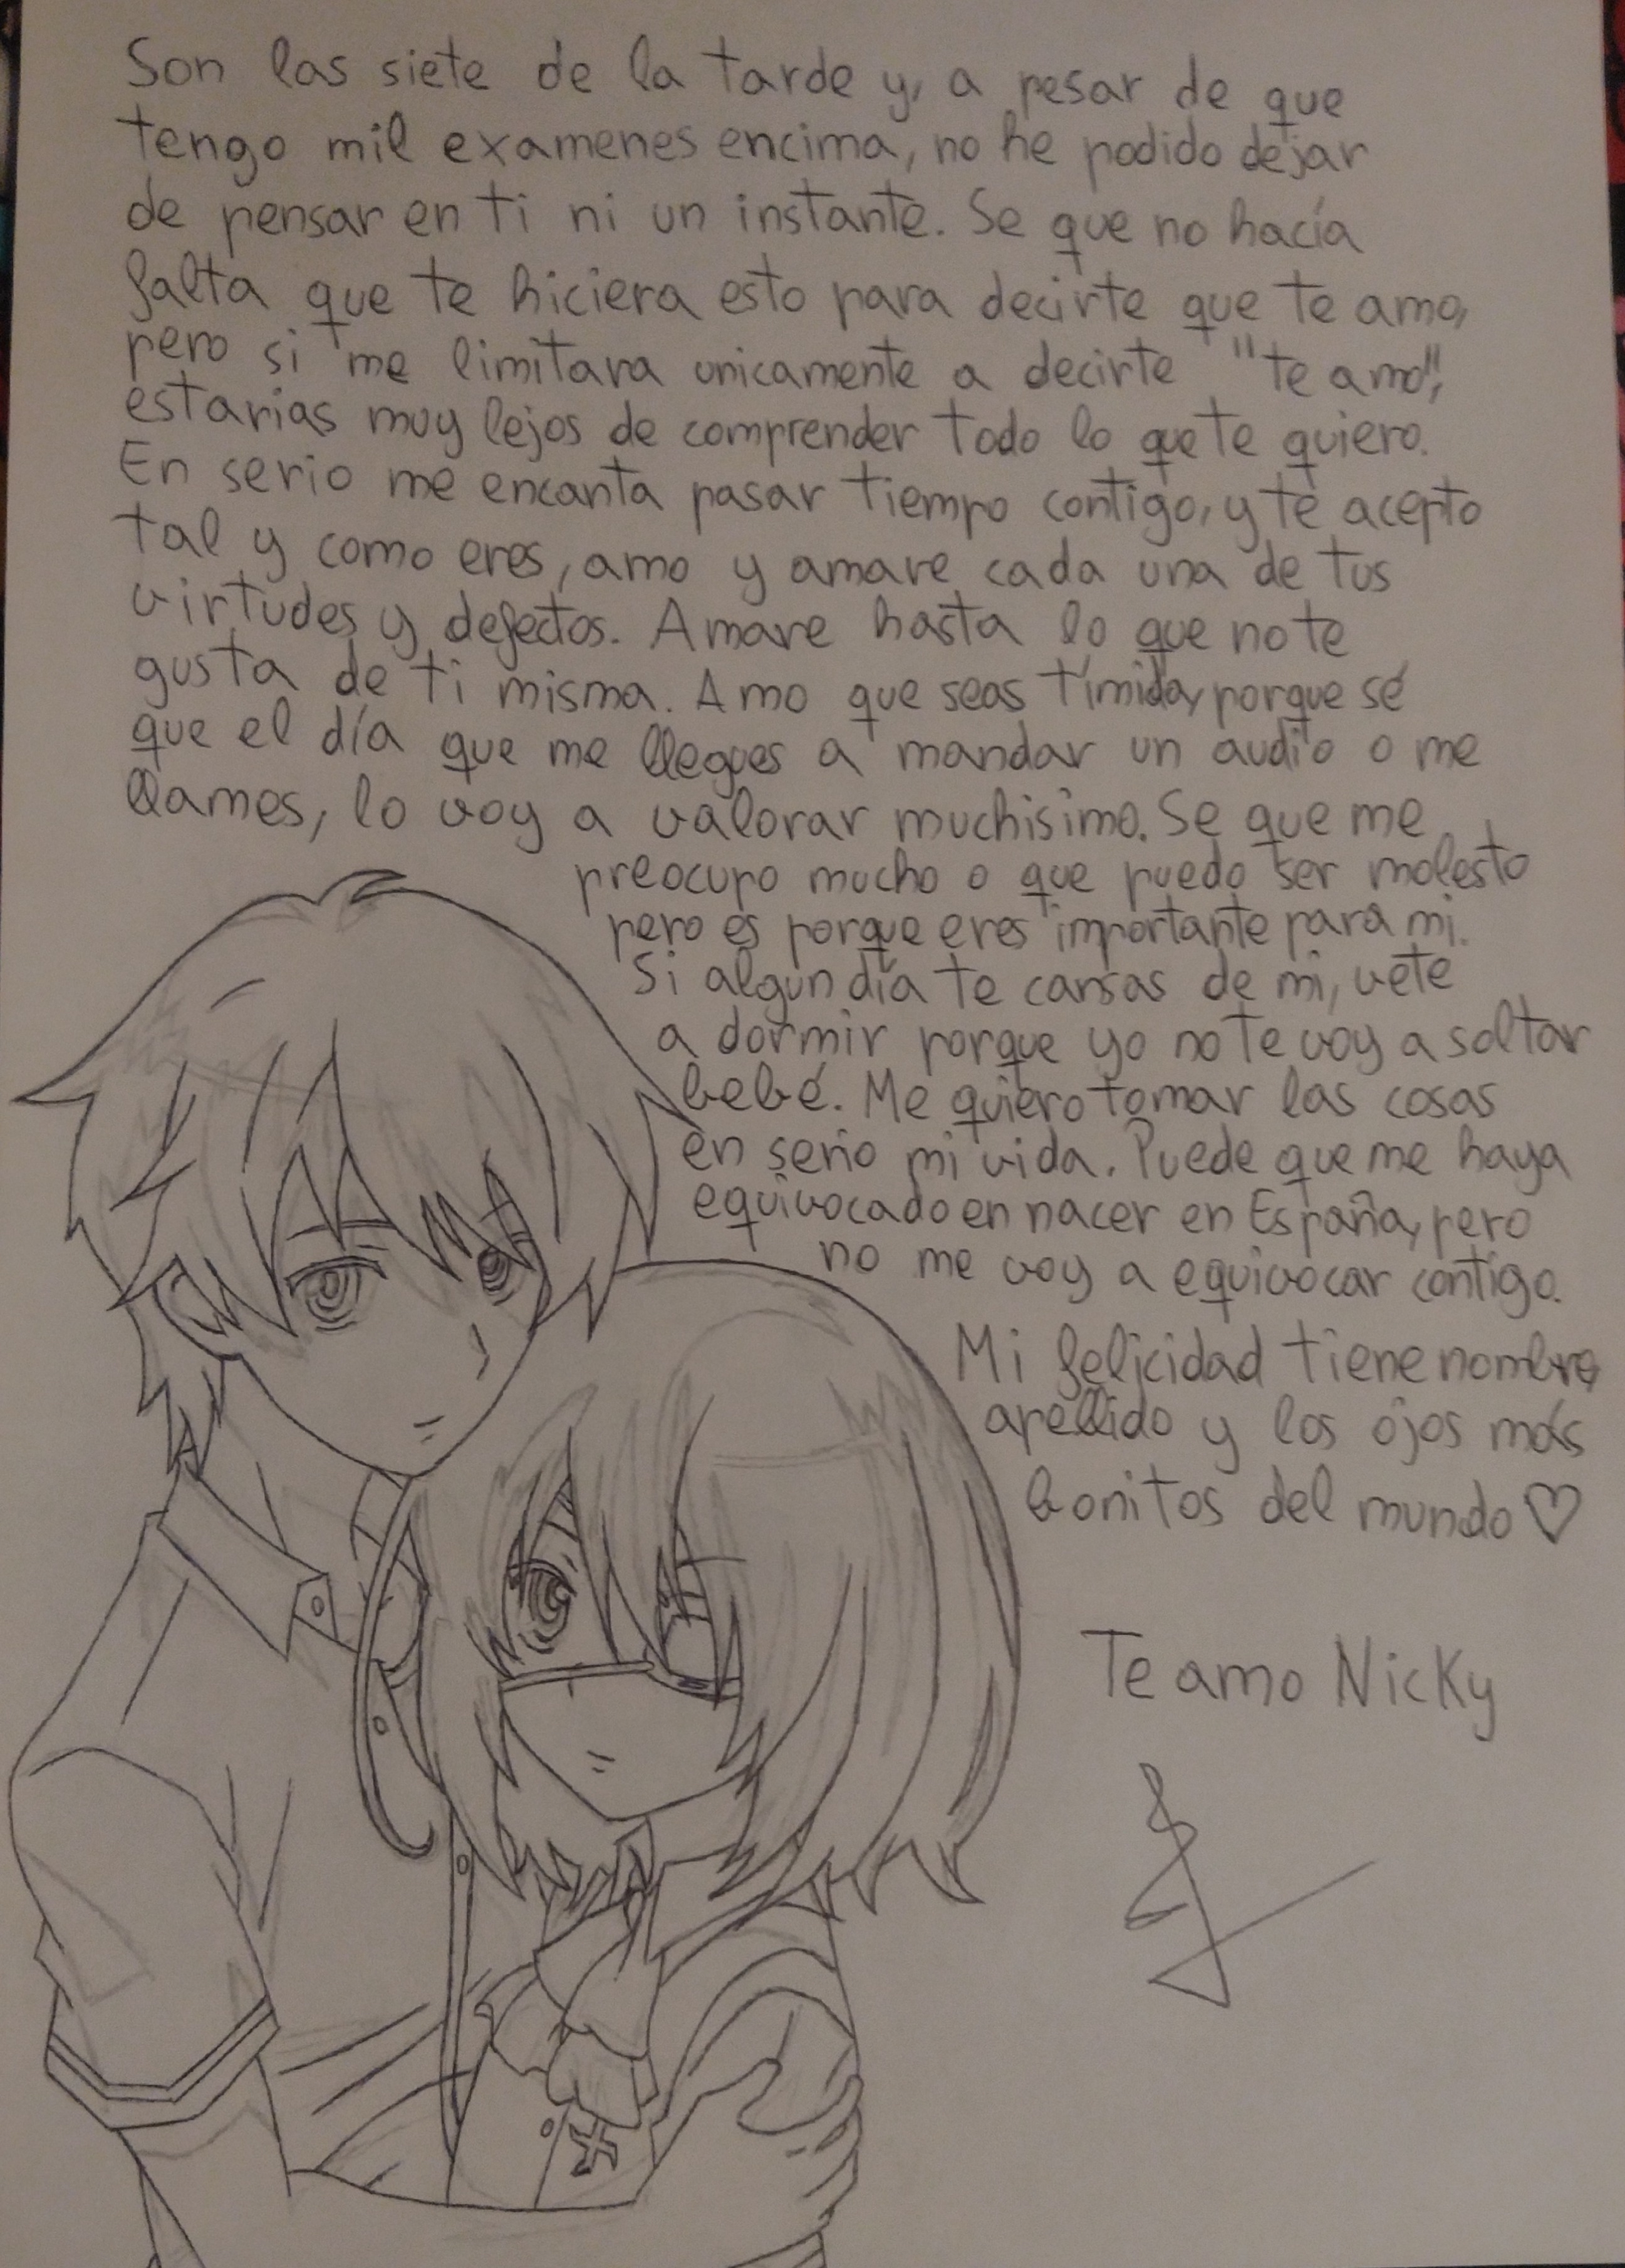 Son las siete de la tarde y, a pesar de que
tengo mil examenes encima, no he podido dejar
de pensar en ti ni un instante. Se que no hacía
falta que te hiciera esto para decirte que te amo,
pero si me limitara unicamente a decirte "te amo",
estarias muy lejos de comprender todo lo que te quiero.
En serio me encanta pasar tiempo contigo, y te acepto
tal y como eres, amo y amare cada una de tus
virtudes y defectos. Amare hasta lo que no te
gusta de ti misma. Amo que seas tímida, porque sé
que el día que me llegues a mandar un audio o me
llames, lo voy a valorar muchisimo. Se que me
preocupo mucho o que puedo ser molesto
pero es porque eres importante para mi.
Si algún día te cansas de mi, vete
a dormir porque yo no te voy a soltar
bebé. Me quiero tomar las cosas
en serio mi vida. Puede que me haya
equivocado en nacer en España, pero
no me voy a equivocar contigo.
Mi felicidad tiene nombre,
apellido y los ojos más
bonitos del mundo ♡
Te amo Nicky